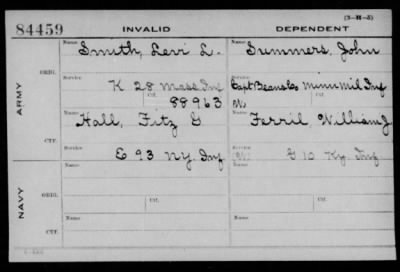 (3-H-5)
84459 INVALID DEPENDENT
Name Smith, Levi L. Name Summers, John
ORIG.
Service K 28 Mass Inf Service Capt Beans Co Minn Mil Inf
Ctf. 88963 Ctf.
ARMY
Name Hall, Fitz G Name Ferril, William J
CTF.
Service E 93 N.Y. Inf G 10 Ky. Inf
Name Name
ORIG.
Service Ctf. Service Ctf.
NAVY
Name Name
CTF.